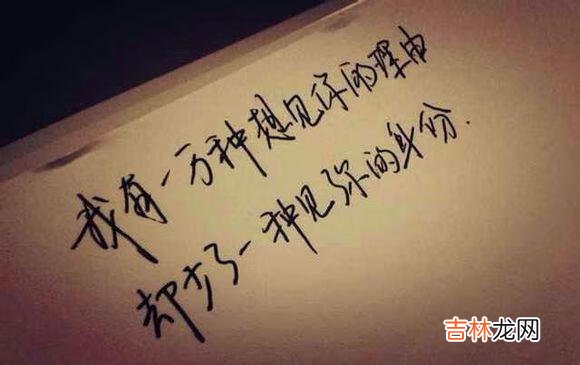 我有一万种想见你的理由
却少了一种见你的身份.
吉林龙网